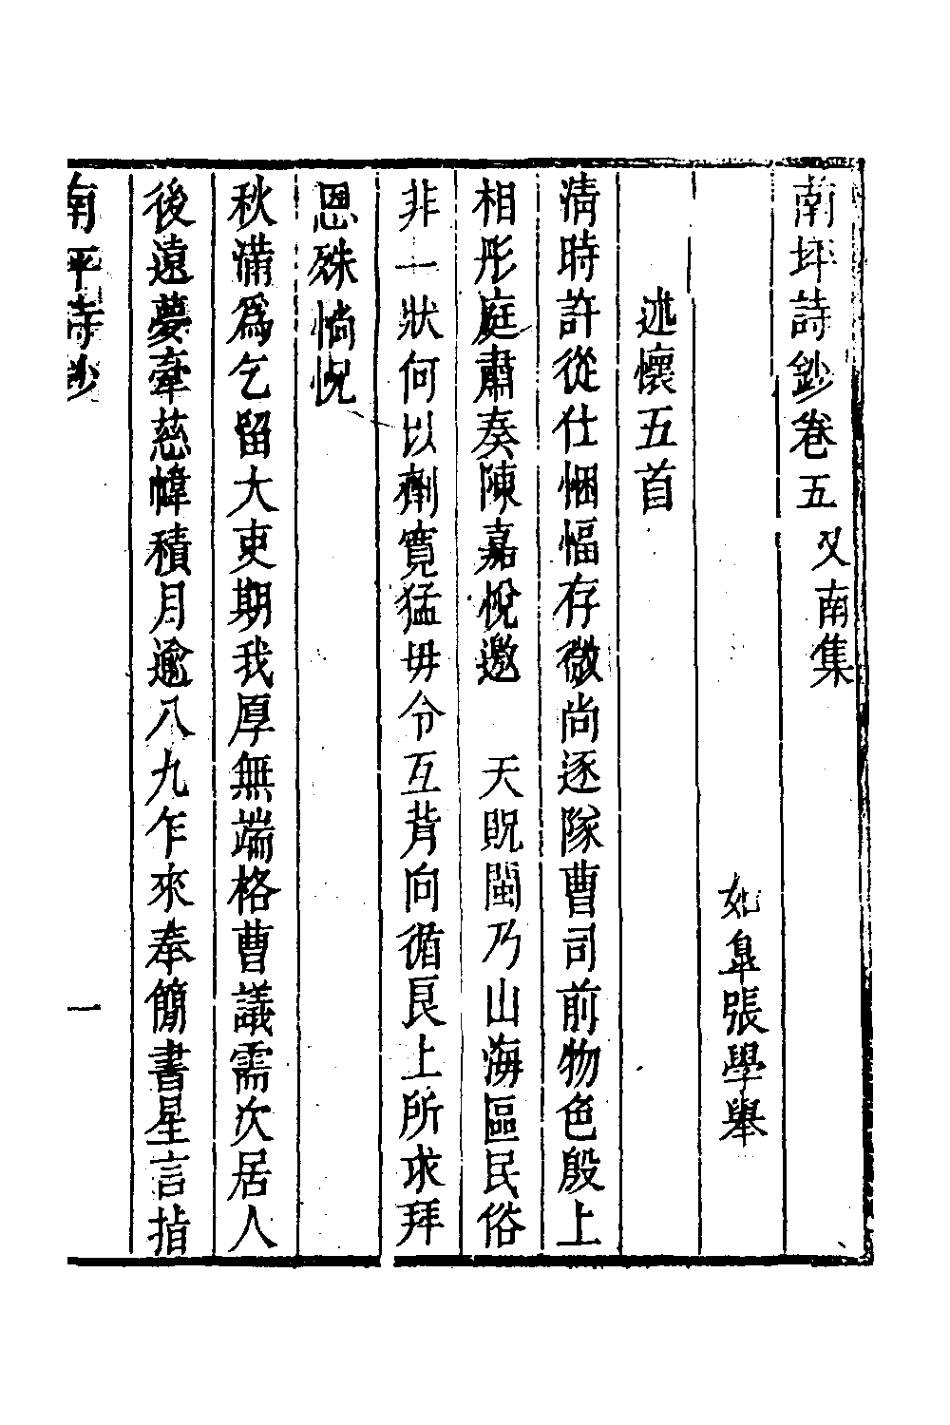 南坪詩鈔卷五　又南集
如皐張學舉
述懷五首
淸時許從仕悃愊存微尚逐隊曹司前物色殷上
相彤庭肅奏陳嘉悅邀　天貺閩乃山海區民俗
非一狀何以劑寬猛毋令互背向循艮上所求拜
恩殊惝怳
秋滿爲乞留大吏期我厚無端格曹議需次居人
後遠夢牽慈幃積月逾八九乍來奉簡書星言指
南平詩鈔
一